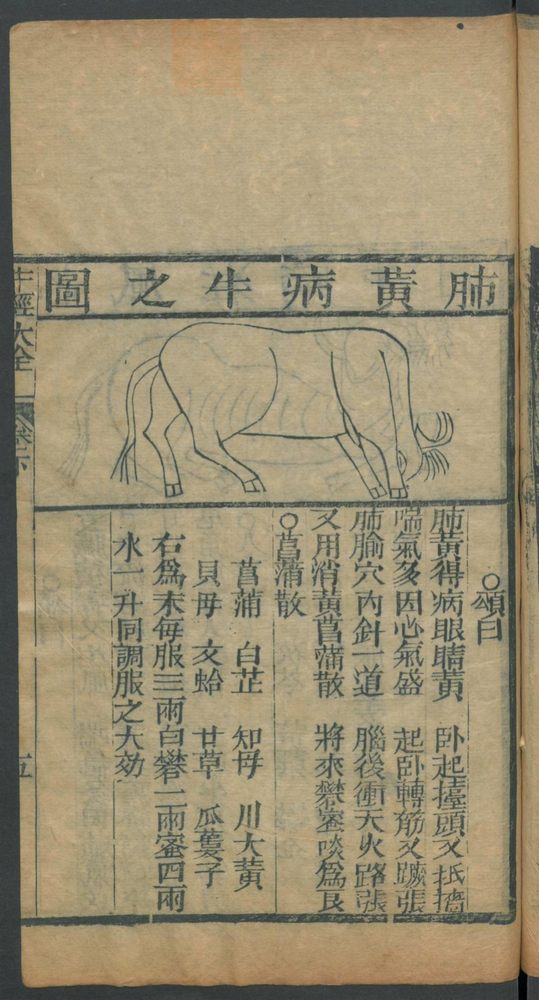 肺黃病牛之圖
○頌曰
肺黃得病眼睛黃 卧起擡頭又抵墻
喘氣多因心氣盛 起卧轉筋又蹶張
肺腧穴內針一道 腦後衝天火路張
又用消黃菖蒲散 將來礬蜜啖爲良
○菖蒲散
菖蒲 白芷 知母 川大黃
貝母 文蛤 甘草 瓜蔞子
右爲末每服三兩白礬二兩蜜四兩
水一升同調服之大効
牛經大全
卷下
五